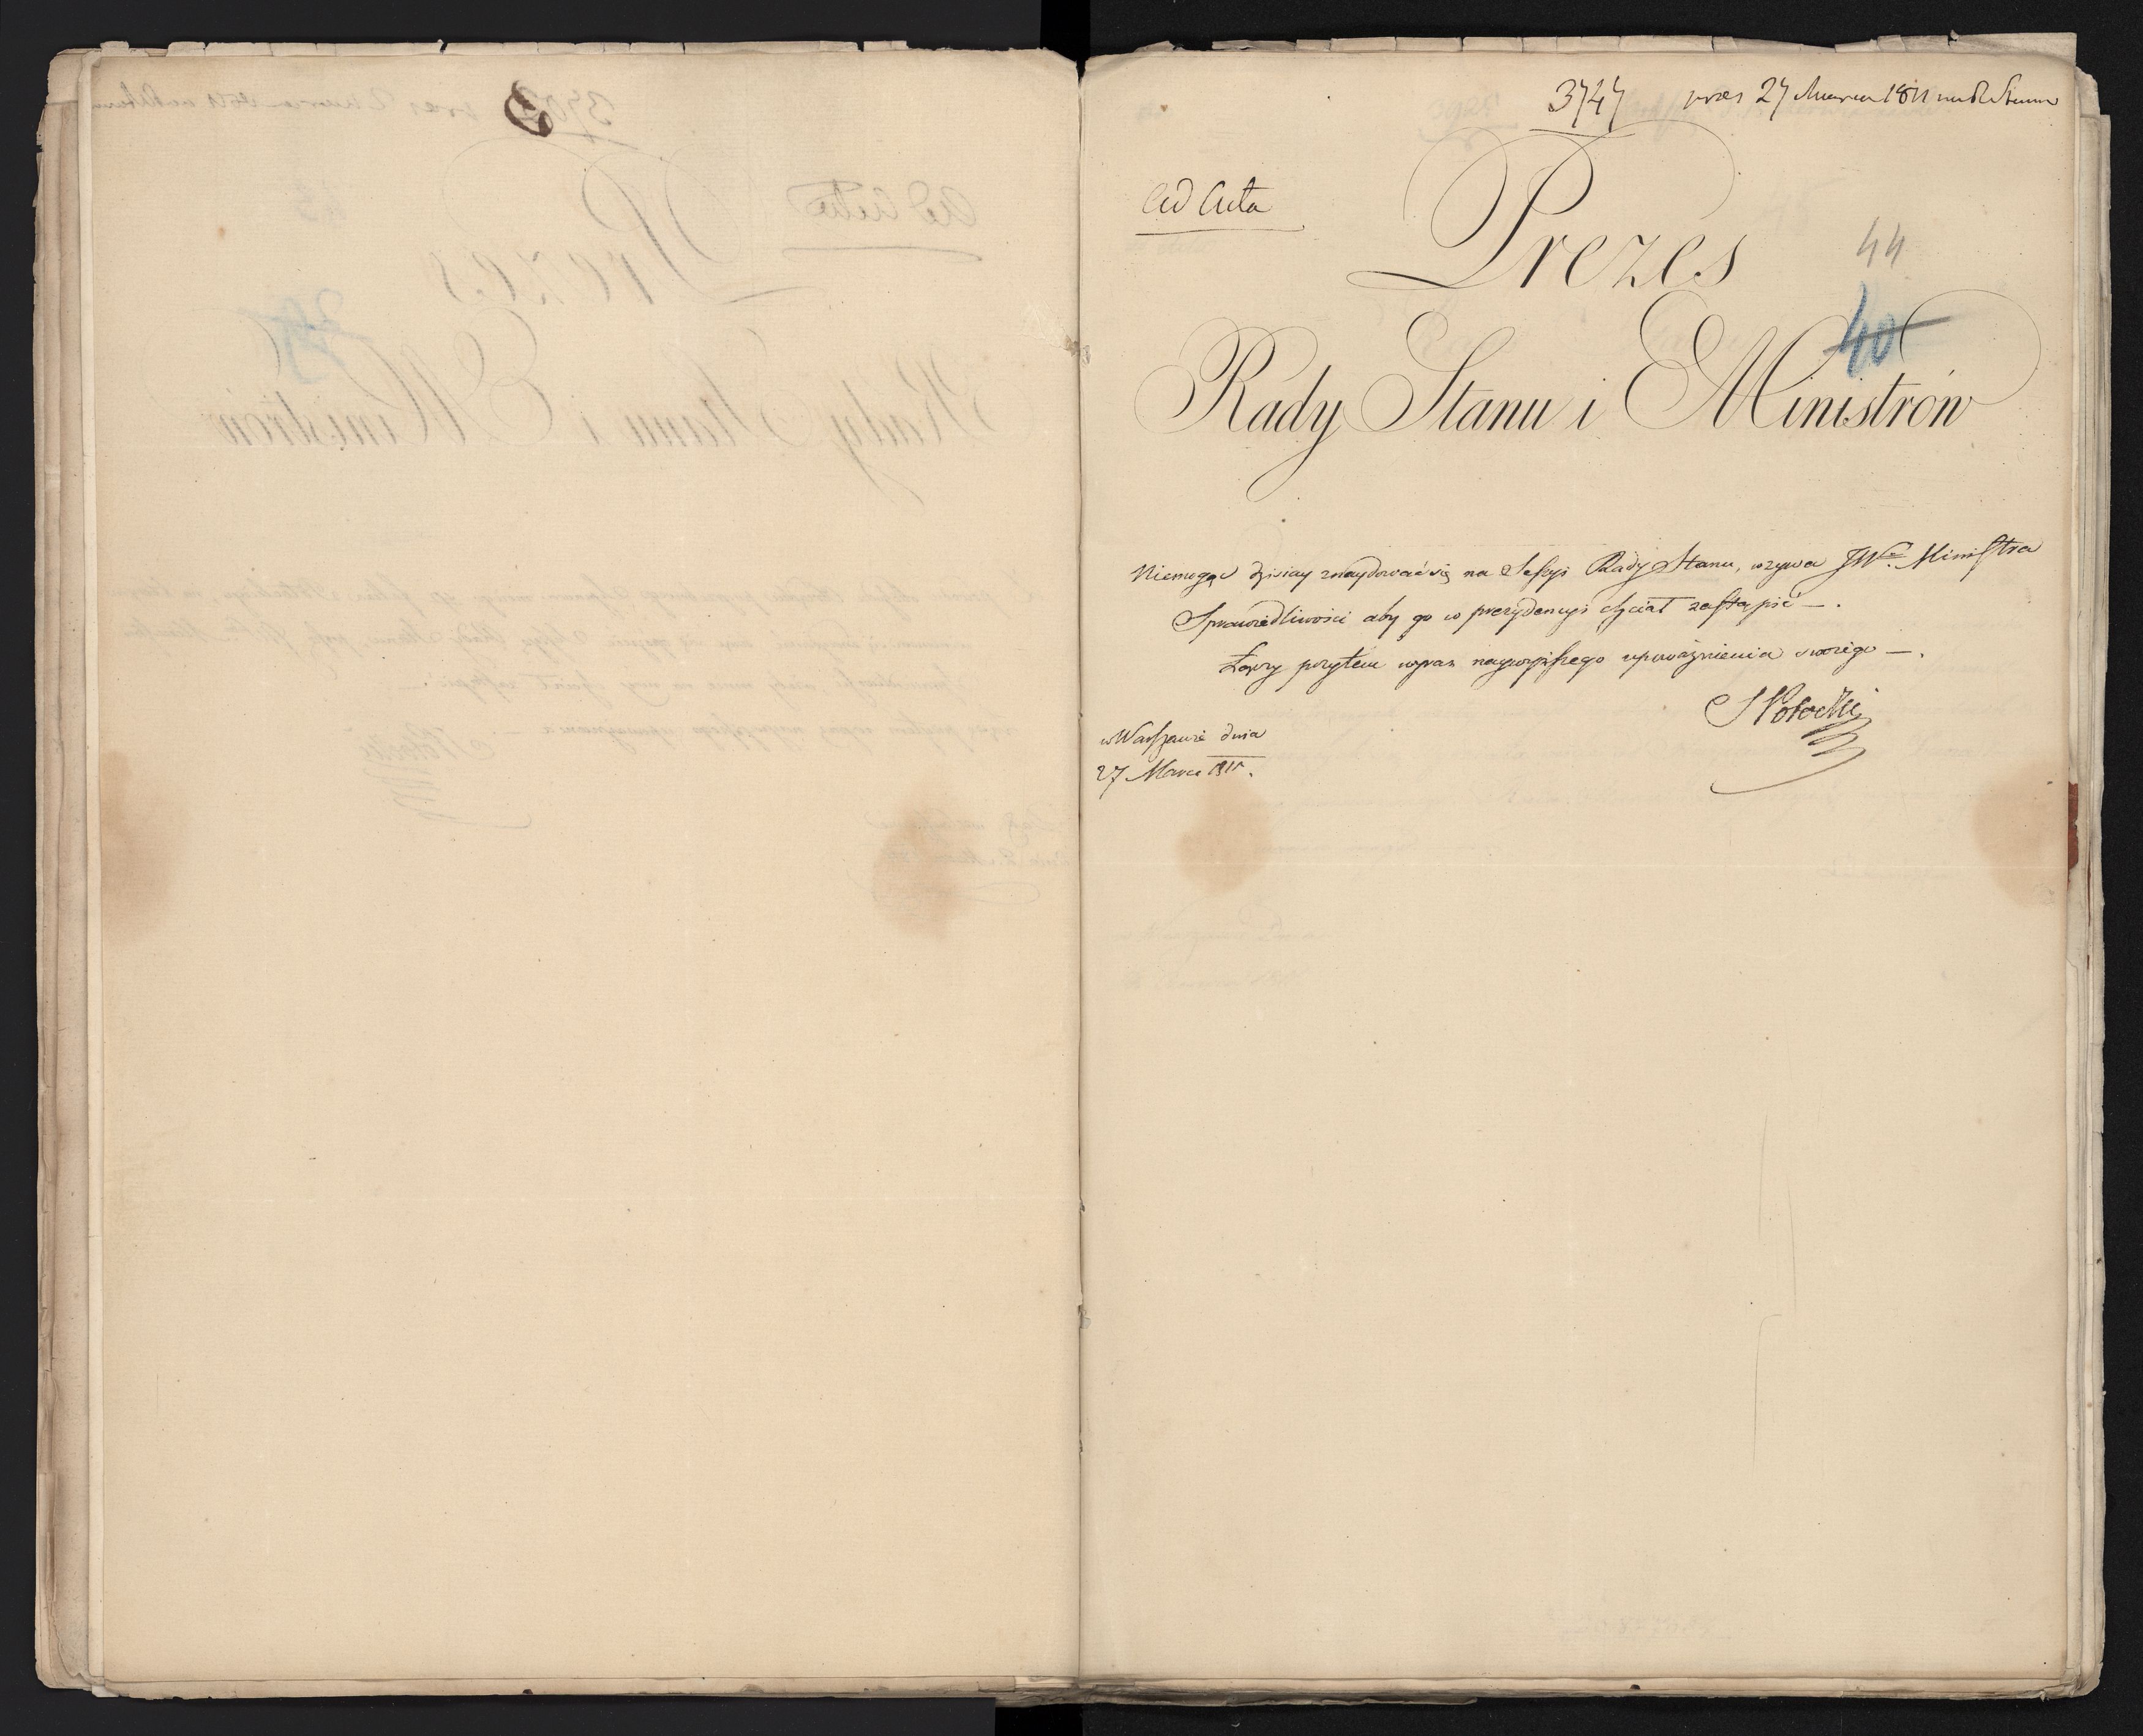 3747 przs 27 Marca 1811 na R Stanu
Ad Acta
Prezes
44
40
Rady Stanu i Ministrów
Niemogąc dzisiay znaydować się na Sessyi Rady Stanu, wzywa JWo. Ministra
Sprawiedliwości aby go w prezydencyi chciał zastąpić —.
Łączy przytem wyraz naywyższego upoważnienia swoiego —.
S Potocki
w Warszawie dnia
27 Marca 1811.